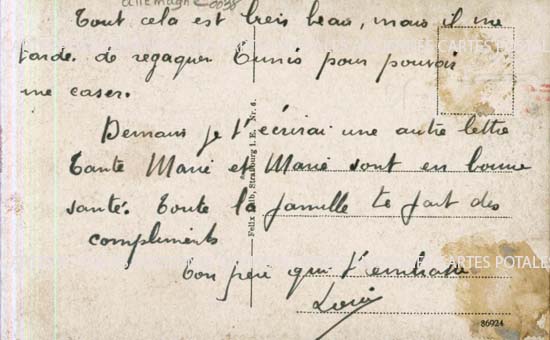 allemagne 0038
Tout cela est très beau, mais il me
tarde de regagner Tunis pour pouvoir
me caser.
Demain je t'écrirai une autre lettre
Tante Marie et Marie sont en bonne
santé. Toute la famille te fait des
compliments
Ton père qui t'embrasse
Felix Luib, Strasbourg i. E. Nr. 6.
86924
CARTES POSTALES
CARTES POTALES